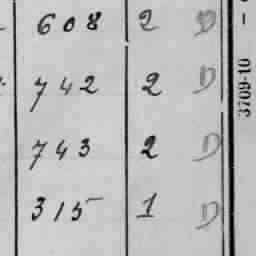 608 2 D
742 2 D
743 2 D
315 1 D
3709-10